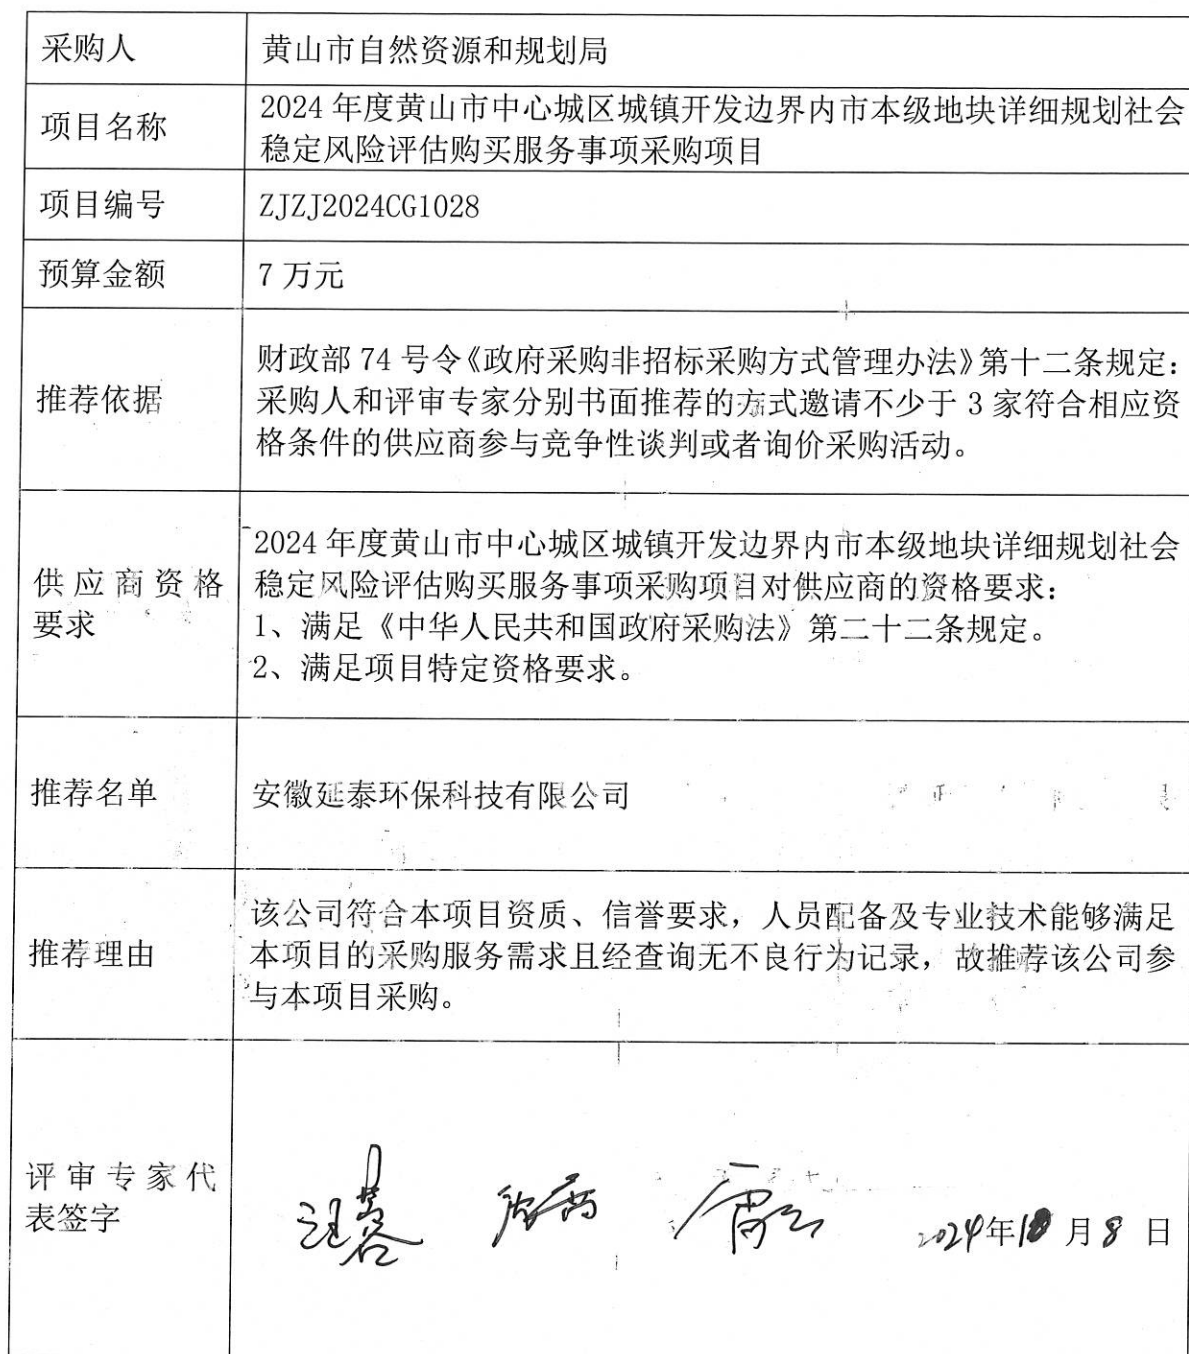 采购人
黄山市自然资源和规划局
项目名称
2024 年度黄山市中心城区城镇开发边界内市本级地块详细规划社会
稳定风险评估购买服务事项采购项目
项目编号
ZJZJ2024CG1028
预算金额
7 万元
推荐依据
财政部 74 号令《政府采购非招标采购方式管理办法》第十二条规定：
采购人和评审专家分别书面推荐的方式邀请不少于 3 家符合相应资
格条件的供应商参与竞争性谈判或者询价采购活动。
供应商资格
要求
2024 年度黄山市中心城区城镇开发边界内市本级地块详细规划社会
稳定风险评估购买服务事项采购项目对供应商的资格要求：
1、满足《中华人民共和国政府采购法》第二十二条规定。
2、满足项目特定资格要求。
推荐名单
安徽延泰环保科技有限公司
推荐理由
该公司符合本项目资质、信誉要求，人员配备及专业技术能够满足
本项目的采购服务需求且经查询无不良行为记录，故推荐该公司参
与本项目采购。
评审专家代
表签字
2024年10月8日